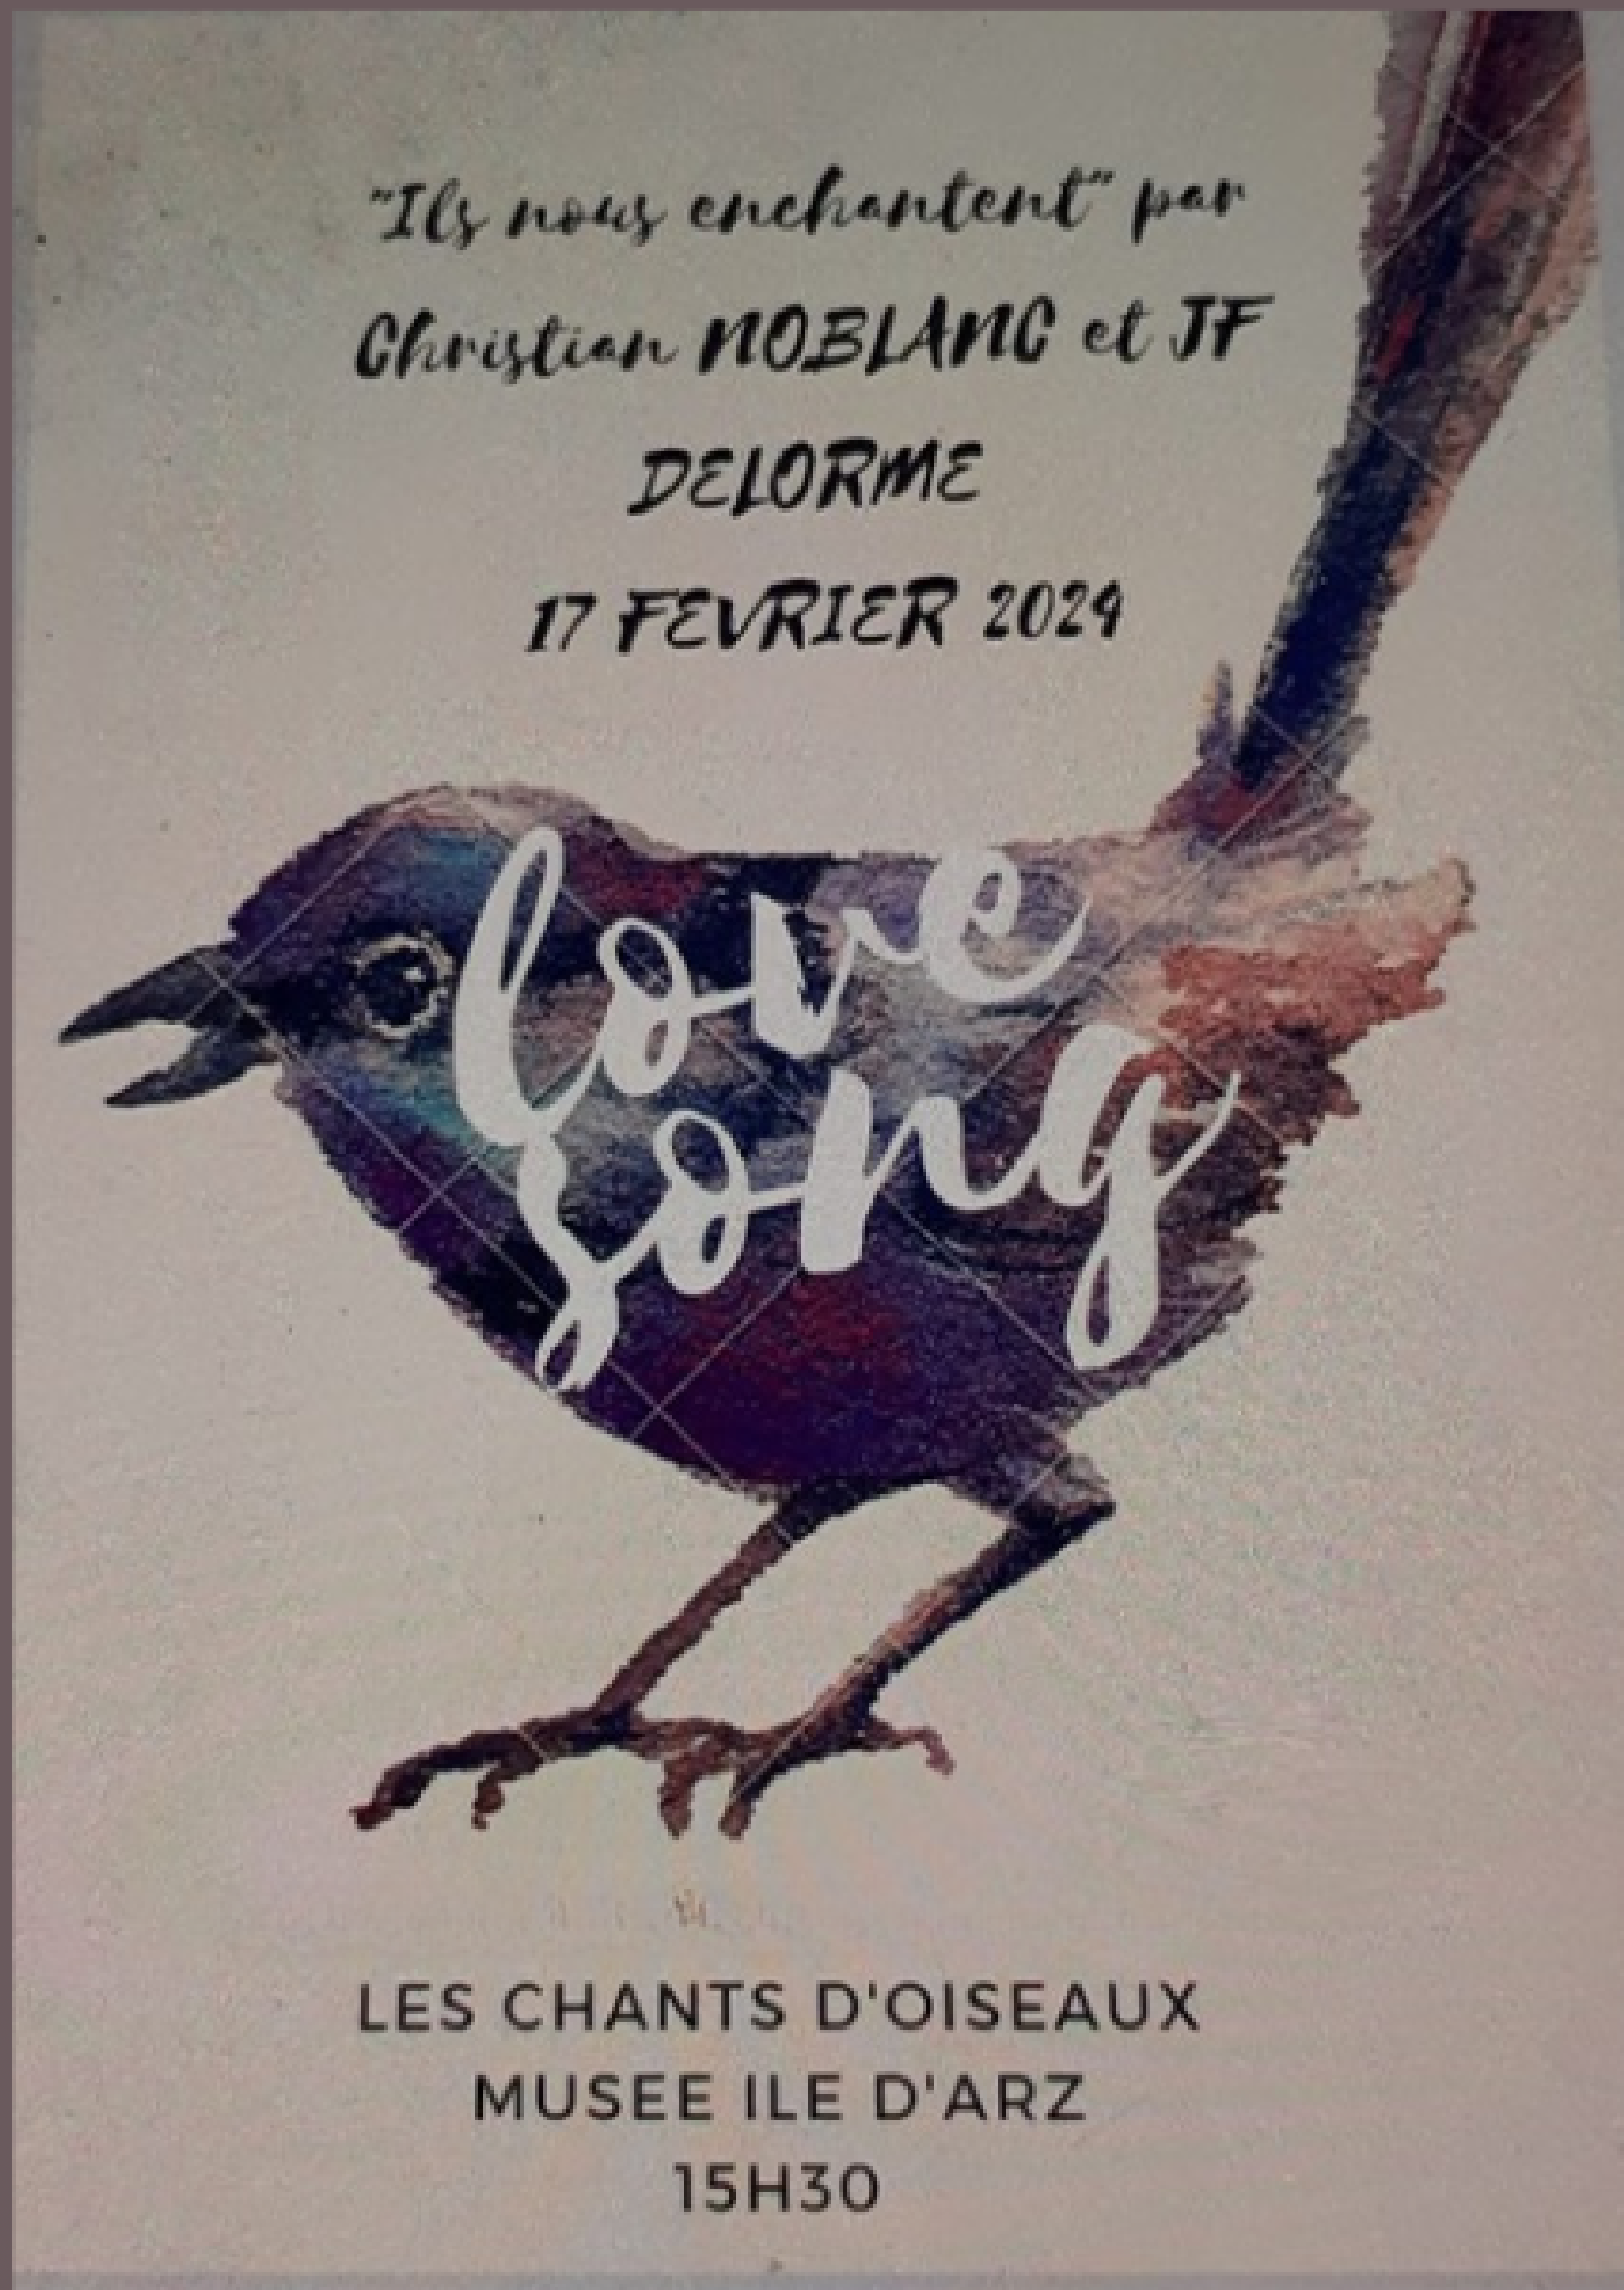 "Ils nous enchantent" par
Christian NOBLANC et JF
DELORME
17 FEVRIER 2024
love
song
LES CHANTS D'OISEAUX
MUSEE ILE D'ARZ
15H30